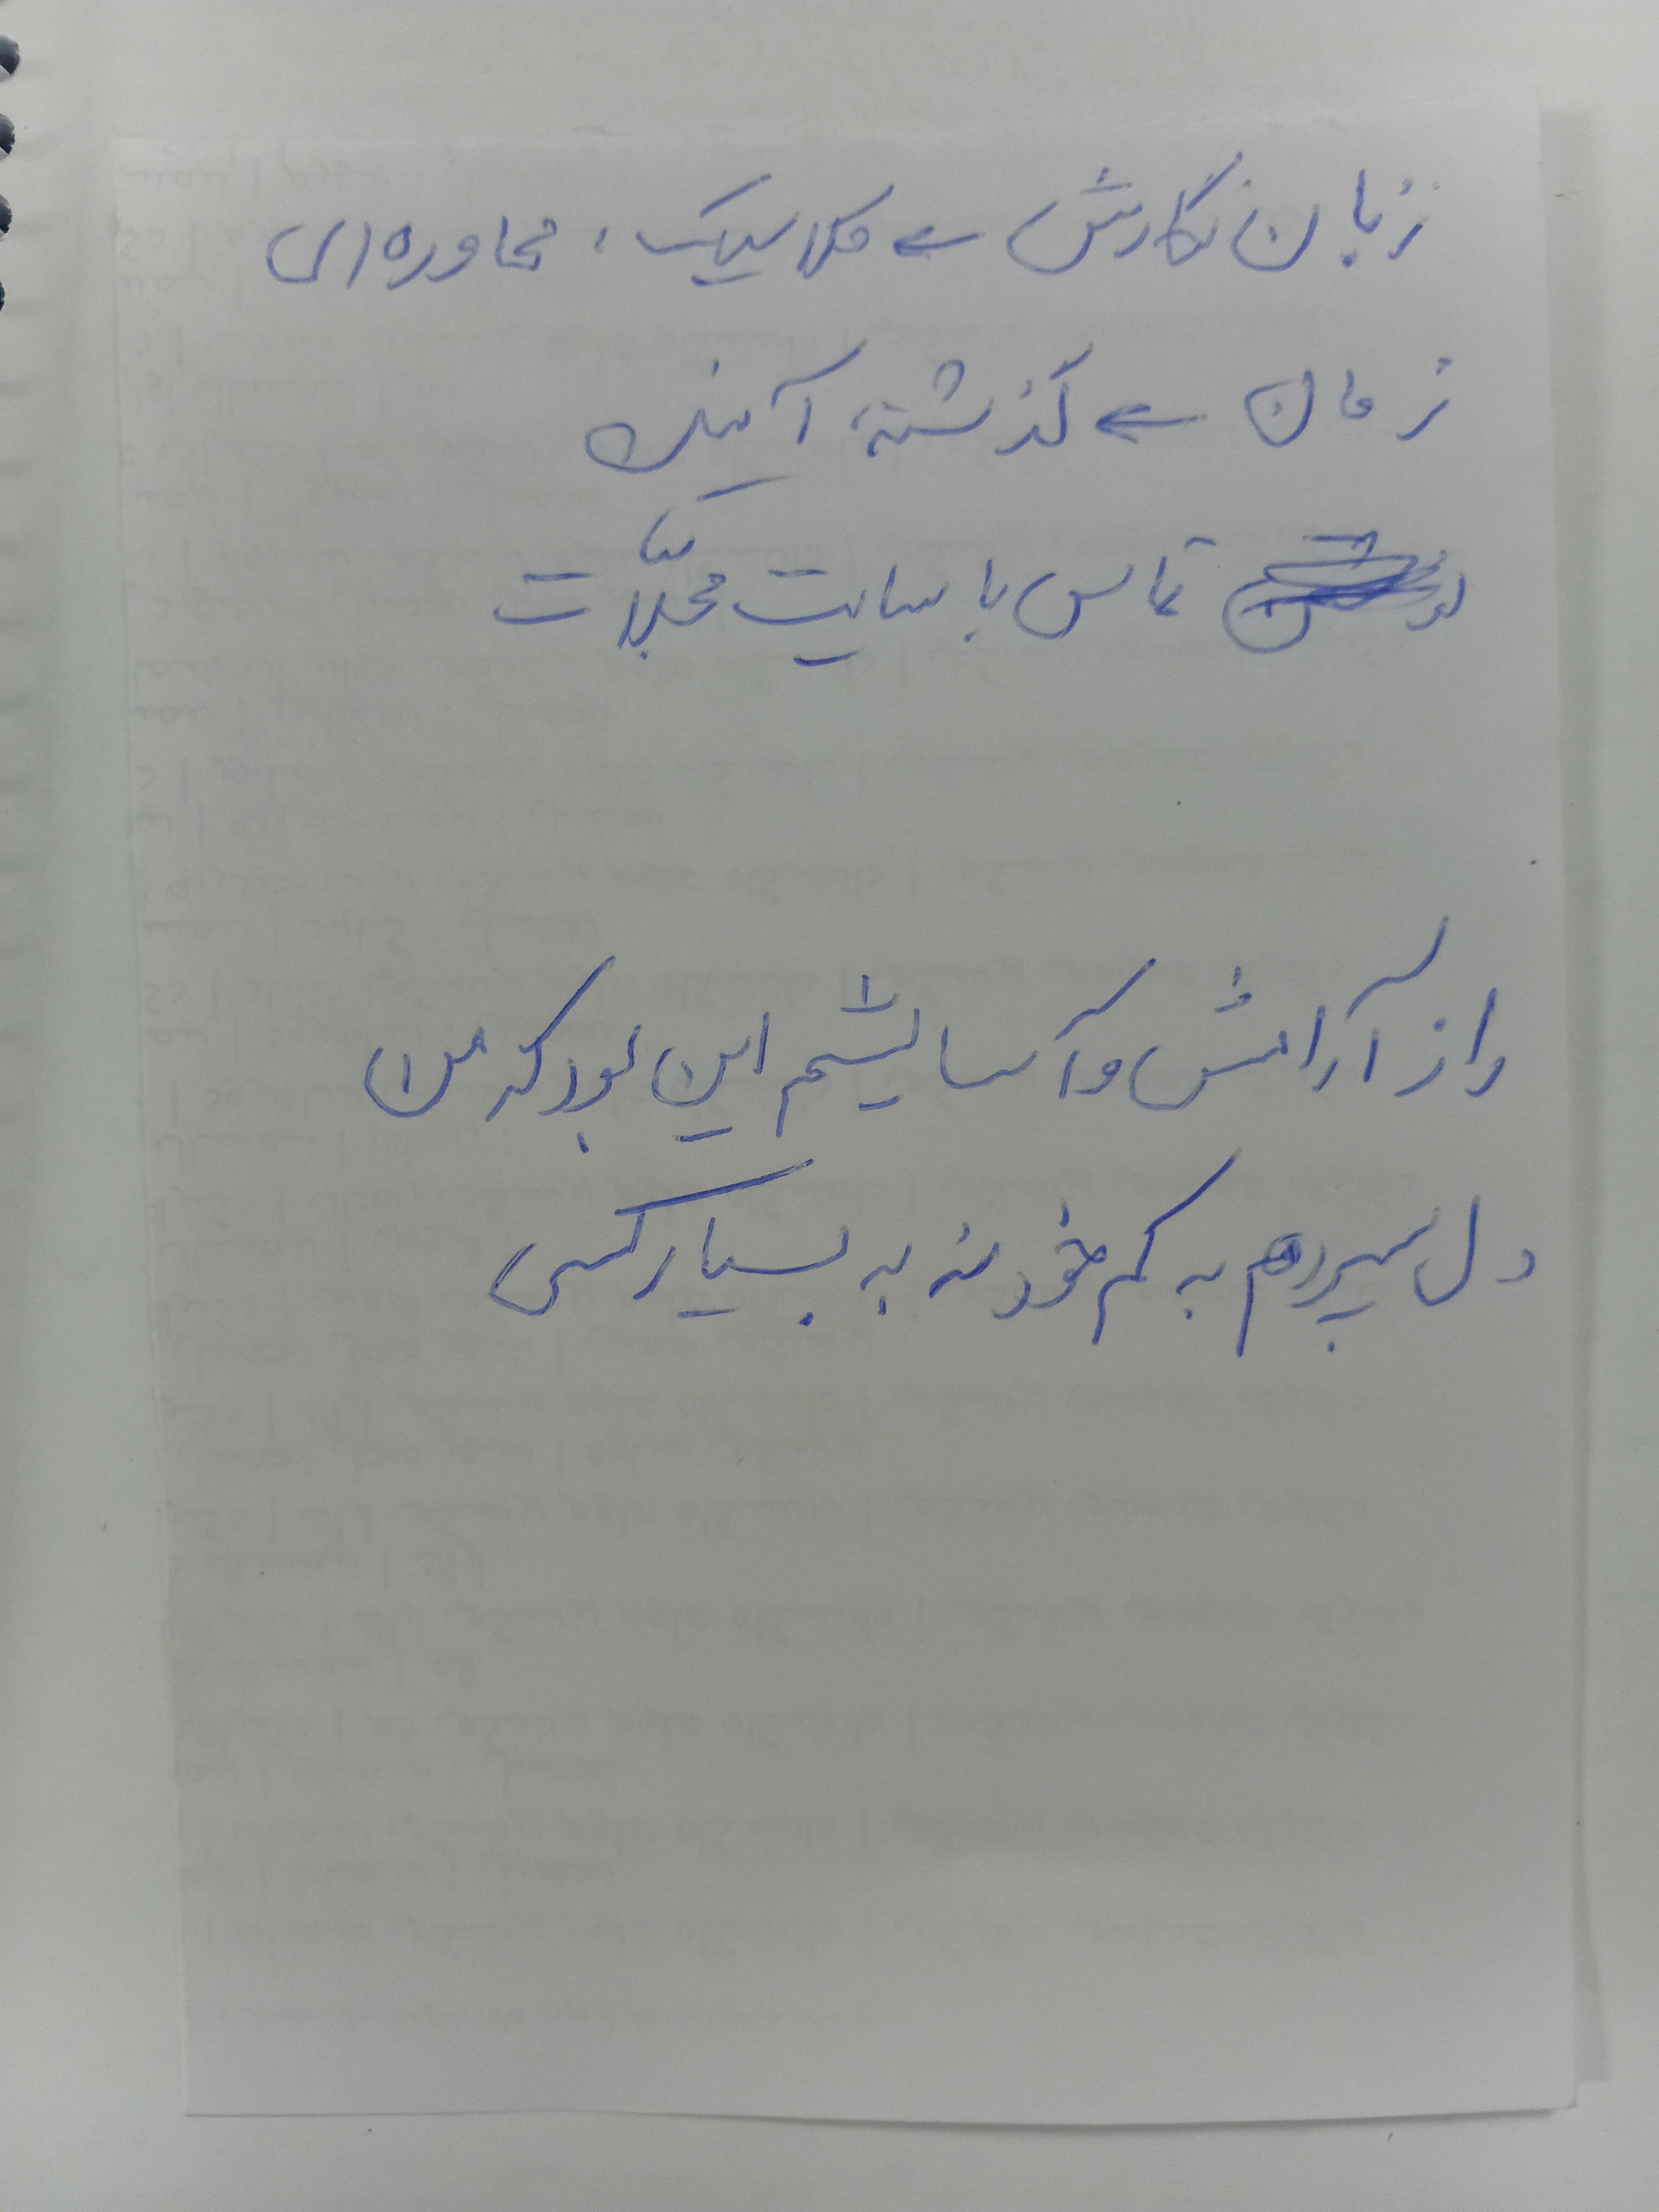 زبان نگارش ← کلاسیک، محاوره‌ای
زمان ← گذشته، آینده
تماس با سایت مجلّات
راز آرامش و آسایشم این بود که من
دل سپردم به کم خود نه به بسیار کسی